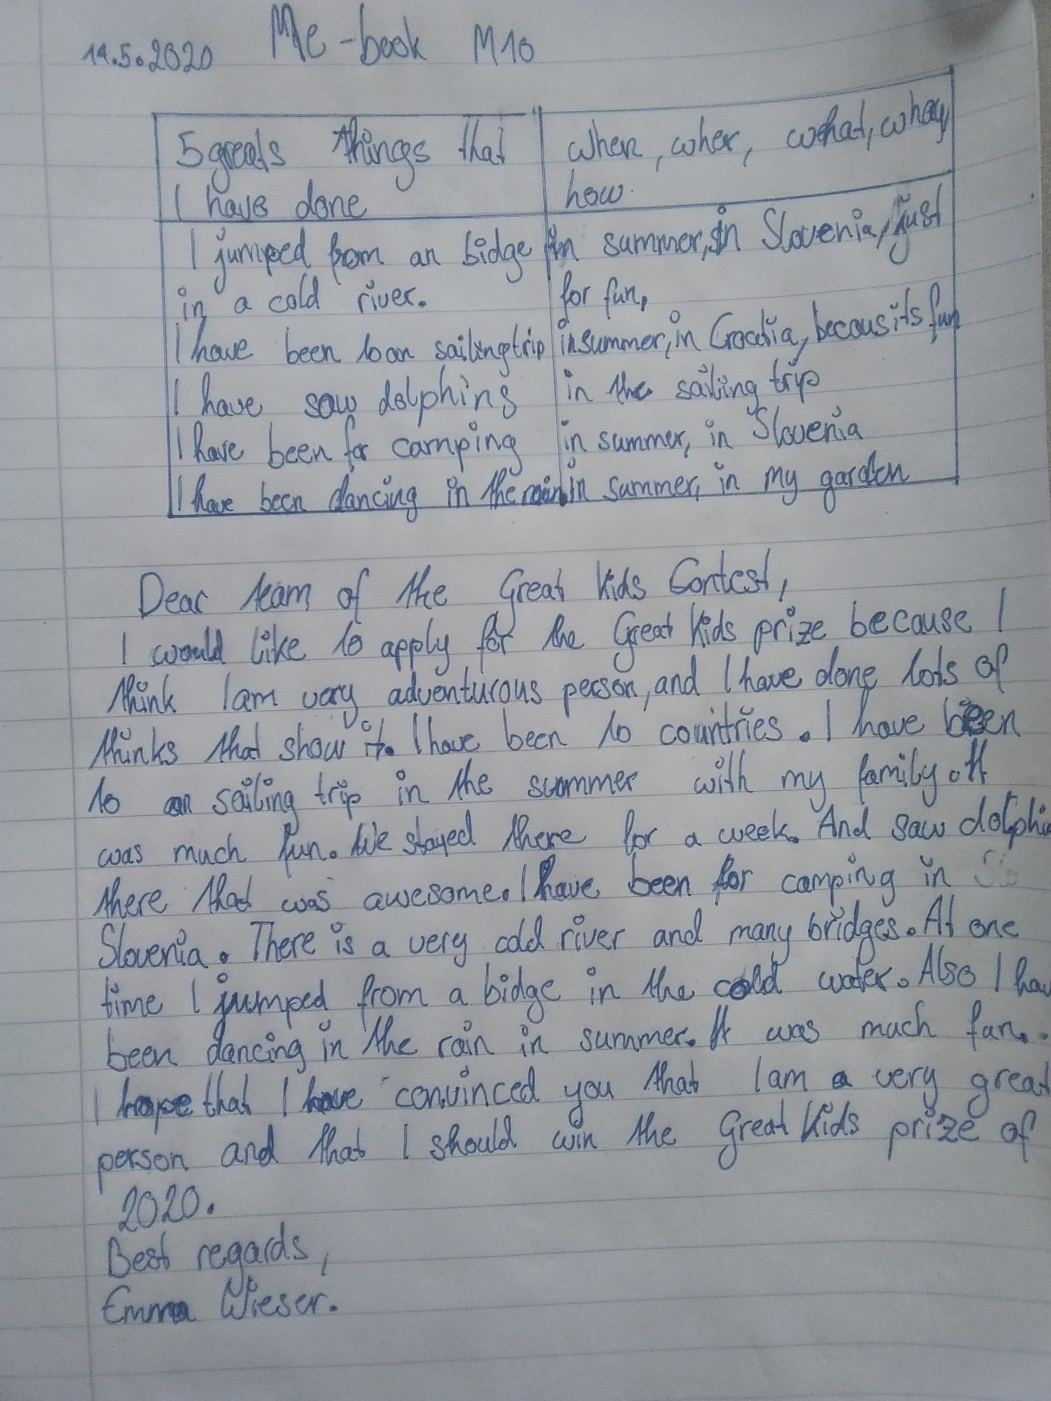 14.5.2020 Me-book M10
5 greats things that when, wher, what, whay,
I have done how.
I jumped from an bidge in summer, in Slovenia, just
in a cold river. for fun,
I have been to an sailing trip in summer, in Croatia, becous its fun
I have saw dolphins in the sailing trip
I have been for camping in summer, in Slovenia
I have been dancing in the rain in summer, in my garden
Dear team of the Great Kids Contest,
I would like to apply for the Great Kids prize because I
think I am very adventurous person, and I have done lots of
thinks that show it. I have been 10 countries. I have been
to an sailing trip in the summer with my family. It
was much fun. We stayed there for a week. And saw dolphin
there that was awesome. I have been for camping in
Slovenia. There is a very cold river and many bridges. At one
time I jumped from a bidge in the cold water. Also I hav
been dancing in the rain in summer. It was much fun.
I hope that I have convinced you that I am a very great
person and that I should win the Great Kids prize of
2020.
Best regards,
Emma Wieser.